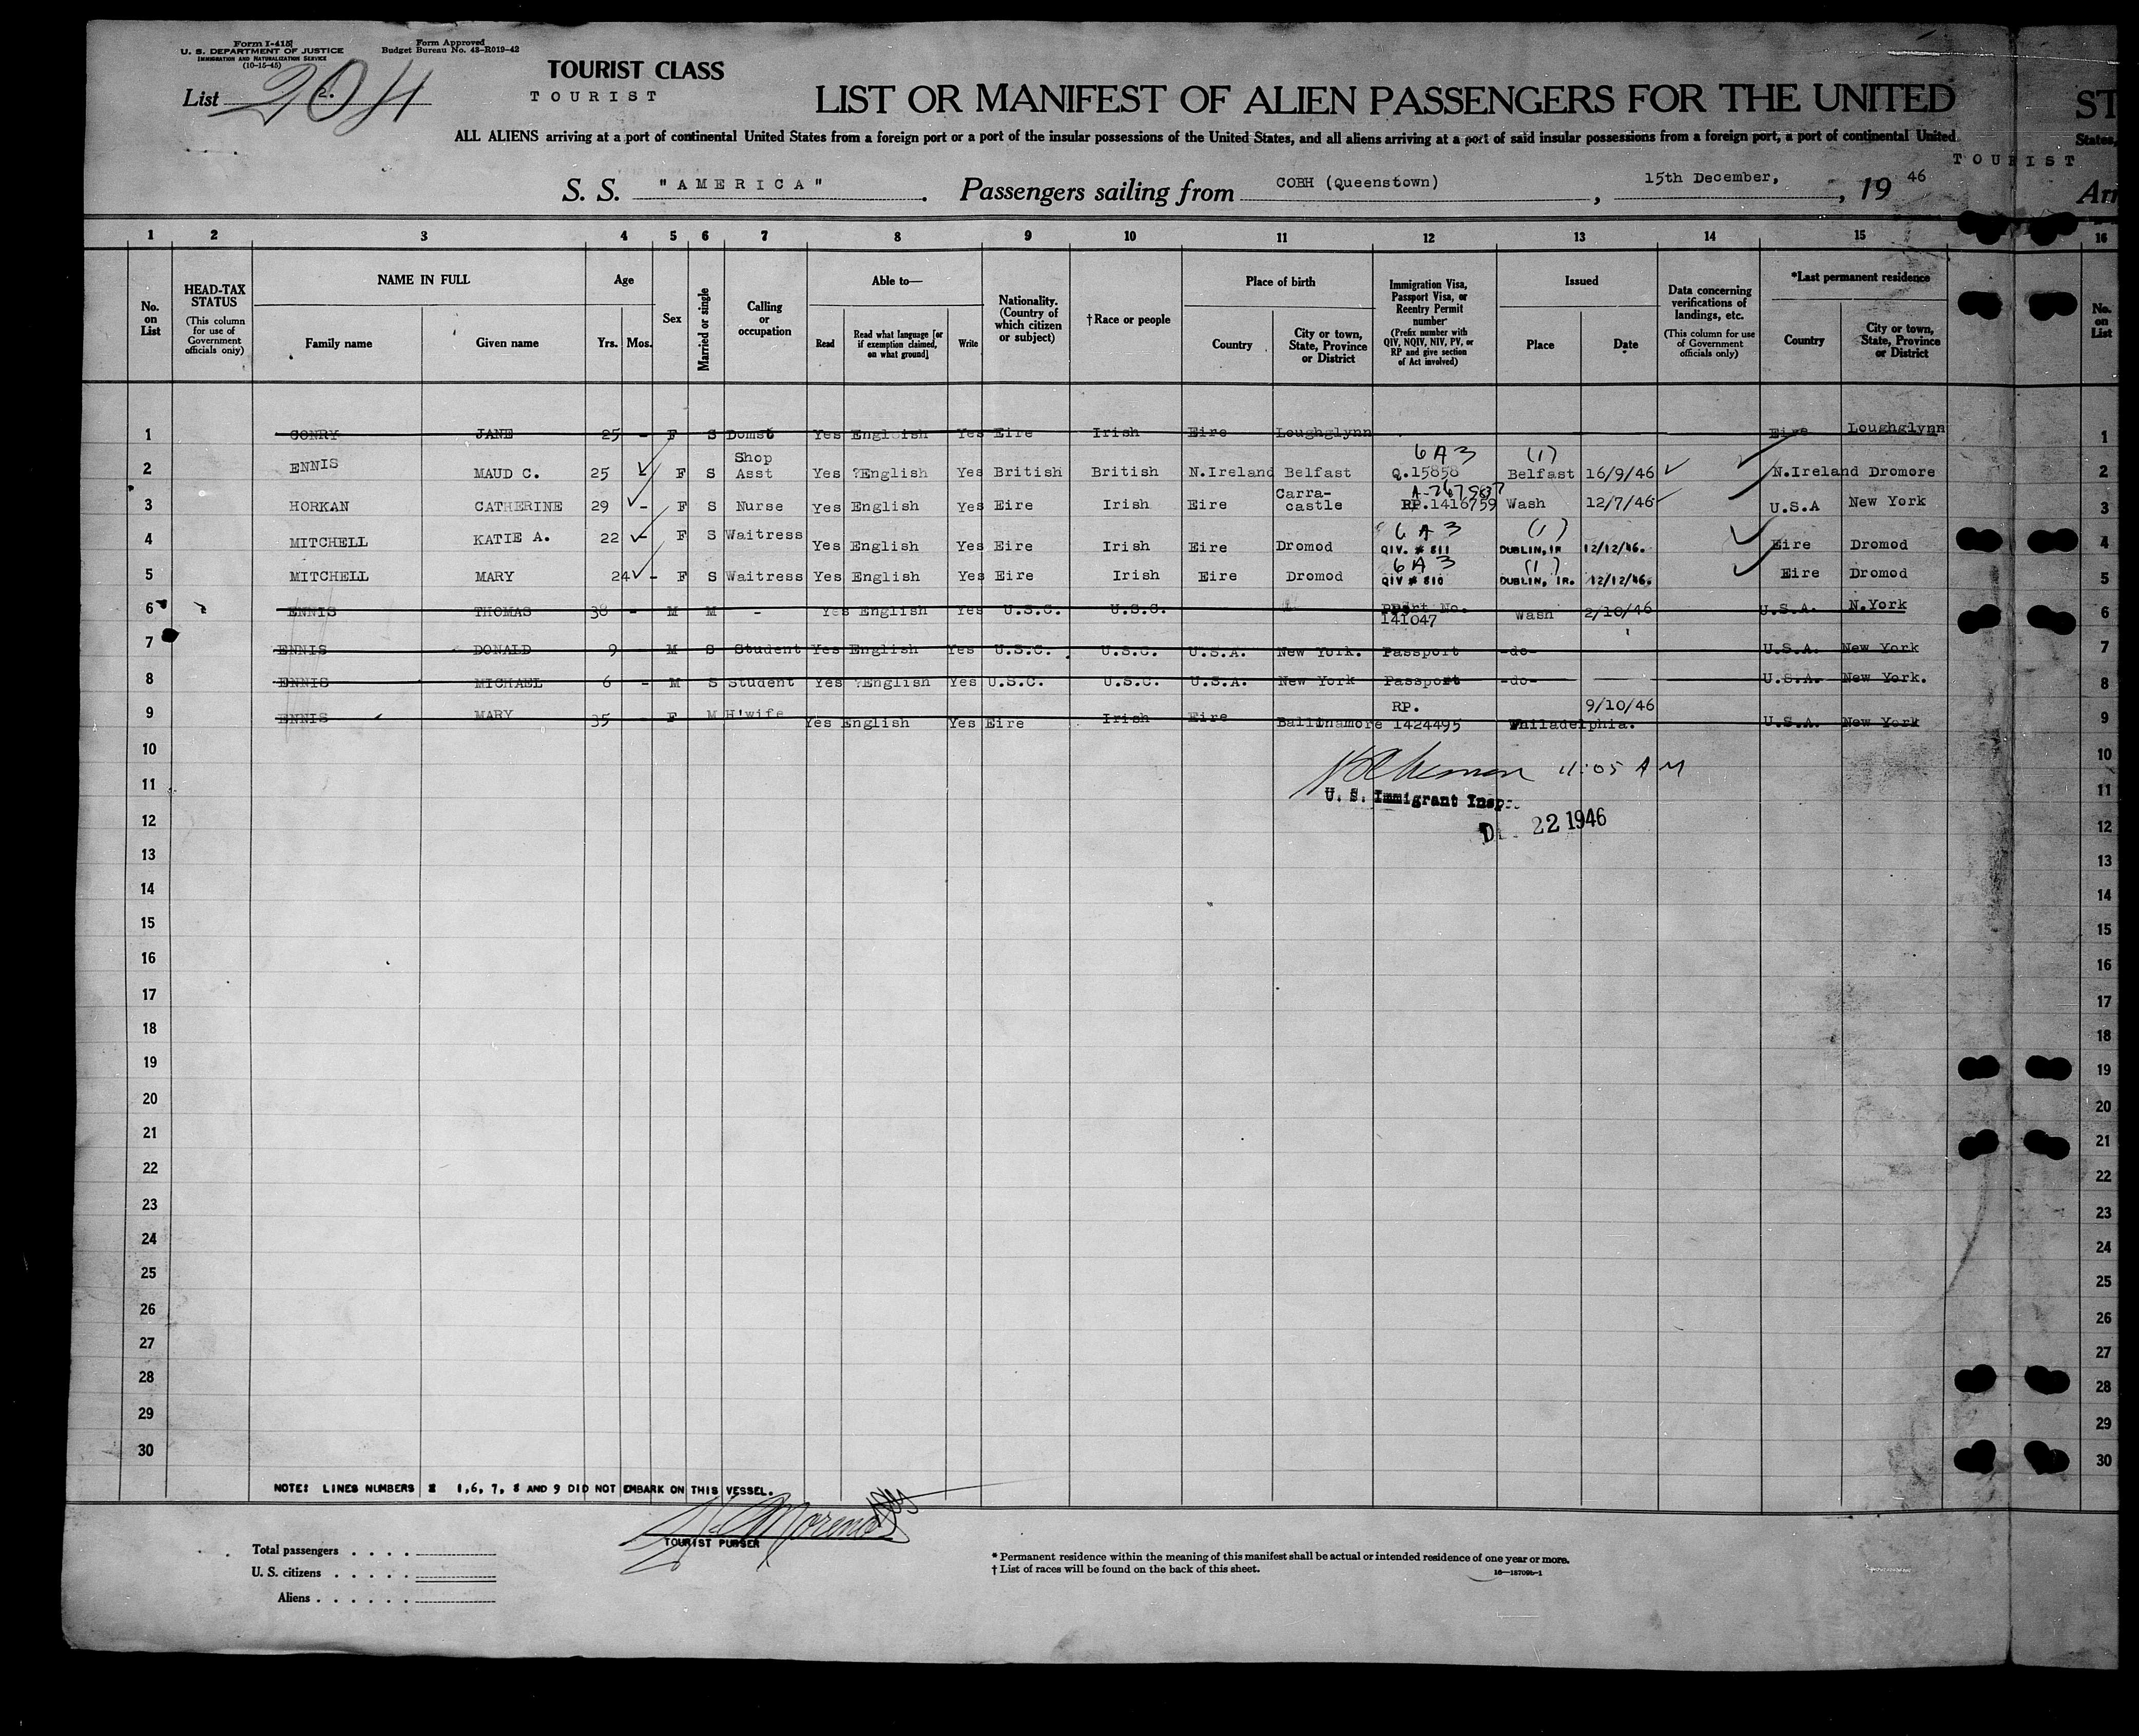 Form I-415
U. S. DEPARTMENT OF JUSTICE
IMMIGRATION AND NATURALIZATION SERVICE
(10-15-45)
Form Approved
Budget Bureau No. 43-R019-42
List 2. 204
TOURIST CLASS
TOURIST
LIST OR MANIFEST OF ALIEN PASSENGERS FOR THE UNITED ST
ALL ALIENS arriving at a port of continental United States from a foreign port or a port of the insular possessions of the United States, and all aliens arriving at a port of said insular possessions from a foreign port, a port of continental United States,
TOURIST
S. S. "AMERICA". Passengers sailing from COBH (Queenstown), 15th December, , 19 46 Arr
1 2 3 4 5 6 7 8 9 10 11 12 13 14 15 16
No. on List
HEAD-TAX STATUS (This column for use of Government officials only)
NAME IN FULL
Family name Given name
Age
Yrs. Mos.
Sex
Married or single
Calling or occupation
Able to—
Read Read what language [or if exemption claimed, on what ground] Write
Nationality. (Country of which citizen or subject)
†Race or people
Place of birth
Country City or town, State, Province or District
Immigration Visa, Passport Visa, or Reentry Permit number (Prefix number with QIV, NQIV, NIV, PV, or RP and give section of Act involved)
Issued
Place Date
Data concerning verifications of landings, etc. (This column for use of Government officials only)
*Last permanent residence
Country City or town, State, Province or District
No. on List
1 CONRY JANE 25 - F S Domst Yes English Yes Eire Irish Eire Loughglynn Eire Loughglynn 1
6A3 (1)
2 ENNIS MAUD C. 25 F S Shop Asst Yes English Yes British British N.Ireland Belfast Q.15858 Belfast 16/9/46 N.Ireland Dromore 2
3 HORKAN CATHERINE 29 - F S Nurse Yes English Yes Eire Irish Eire Carra-castle RP.1416759 Wash 12/7/46 U.S.A New York 3
6A3 (1)
4 MITCHELL KATIE A. 22 - F S Waitress Yes English Yes Eire Irish Eire Dromod QIV. # 811 DUBLIN, IR 12/12/46. Eire Dromod 4
6A3 (1)
5 MITCHELL MARY 24 - F S Waitress Yes English Yes Eire Irish Eire Dromod QIV # 810 DUBLIN, IR. 12/12/46. Eire Dromod 5
6 ENNIS THOMAS 38 - M M - Yes English Yes U.S.C. U.S.C. PPort No. 141047 Wash 2/10/46 U.S.A. N.York 6
7 ENNIS DONALD 9 M S Student Yes English Yes U.S.C. U.S.C. U.S.A. New York. Passport -do- U.S.A. New York 7
8 ENNIS MICHAEL 6 - M S Student Yes English Yes U.S.C. U.S.C. U.S.A. New York Passport -do- U.S.A. New York. 8
9 ENNIS MARY 35 F M H'wife Yes English Yes Eire Irish Eire Ballinamore RP. 1424495 Philadelphia. 9/10/46 U.S.A. New York 9
10 10
11:05 AM
11 11
U. S. Immigrant Insp.
12 12
22 1946
13 13
14 14
15 15
16 16
17 17
18 18
19 19
20 20
21 21
22 22
23 23
24 24
25 25
26 26
27 27
28 28
29 29
30 30
NOTE: LINES NUMBERS 1,6, 7, 8 AND 9 DID NOT EMBARK ON THIS VESSEL.
TOURIST PURSER
Total passengers . . . .
U. S. citizens . . . . .
Aliens . . . . . .
* Permanent residence within the meaning of this manifest shall be actual or intended residence of one year or more.
† List of races will be found on the back of this sheet.